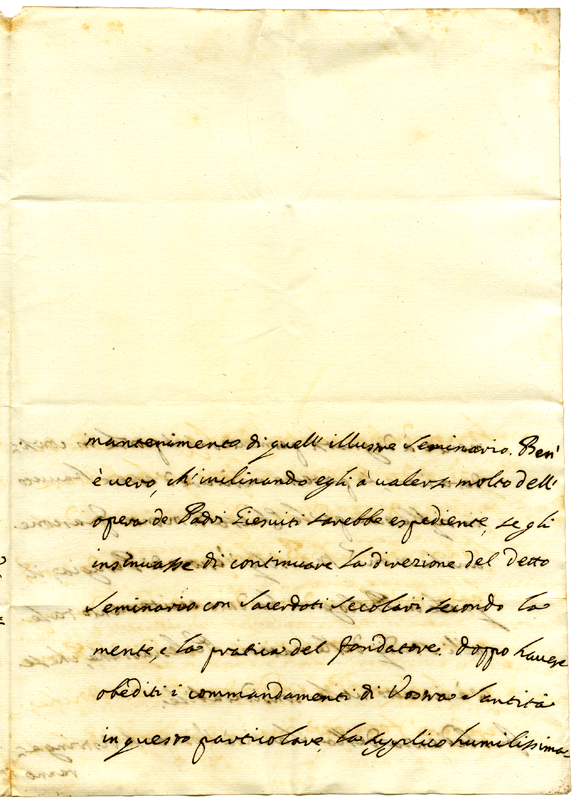 mantenimento di quell' illustre Seminario. Ben'
è vero, ch' inclinando egli à valersi molto dell'
opera de Padri Giesuiti sarebbe espediente, se gli
insinuasse di continuare la direzione del detto
Seminario con Sacerdoti Secolari secondo la
mente, e la pratica del fondatore. Doppo havere
obèditi i commandamenti di Vostra Santità
in questo particolare, la supplico humilissima-